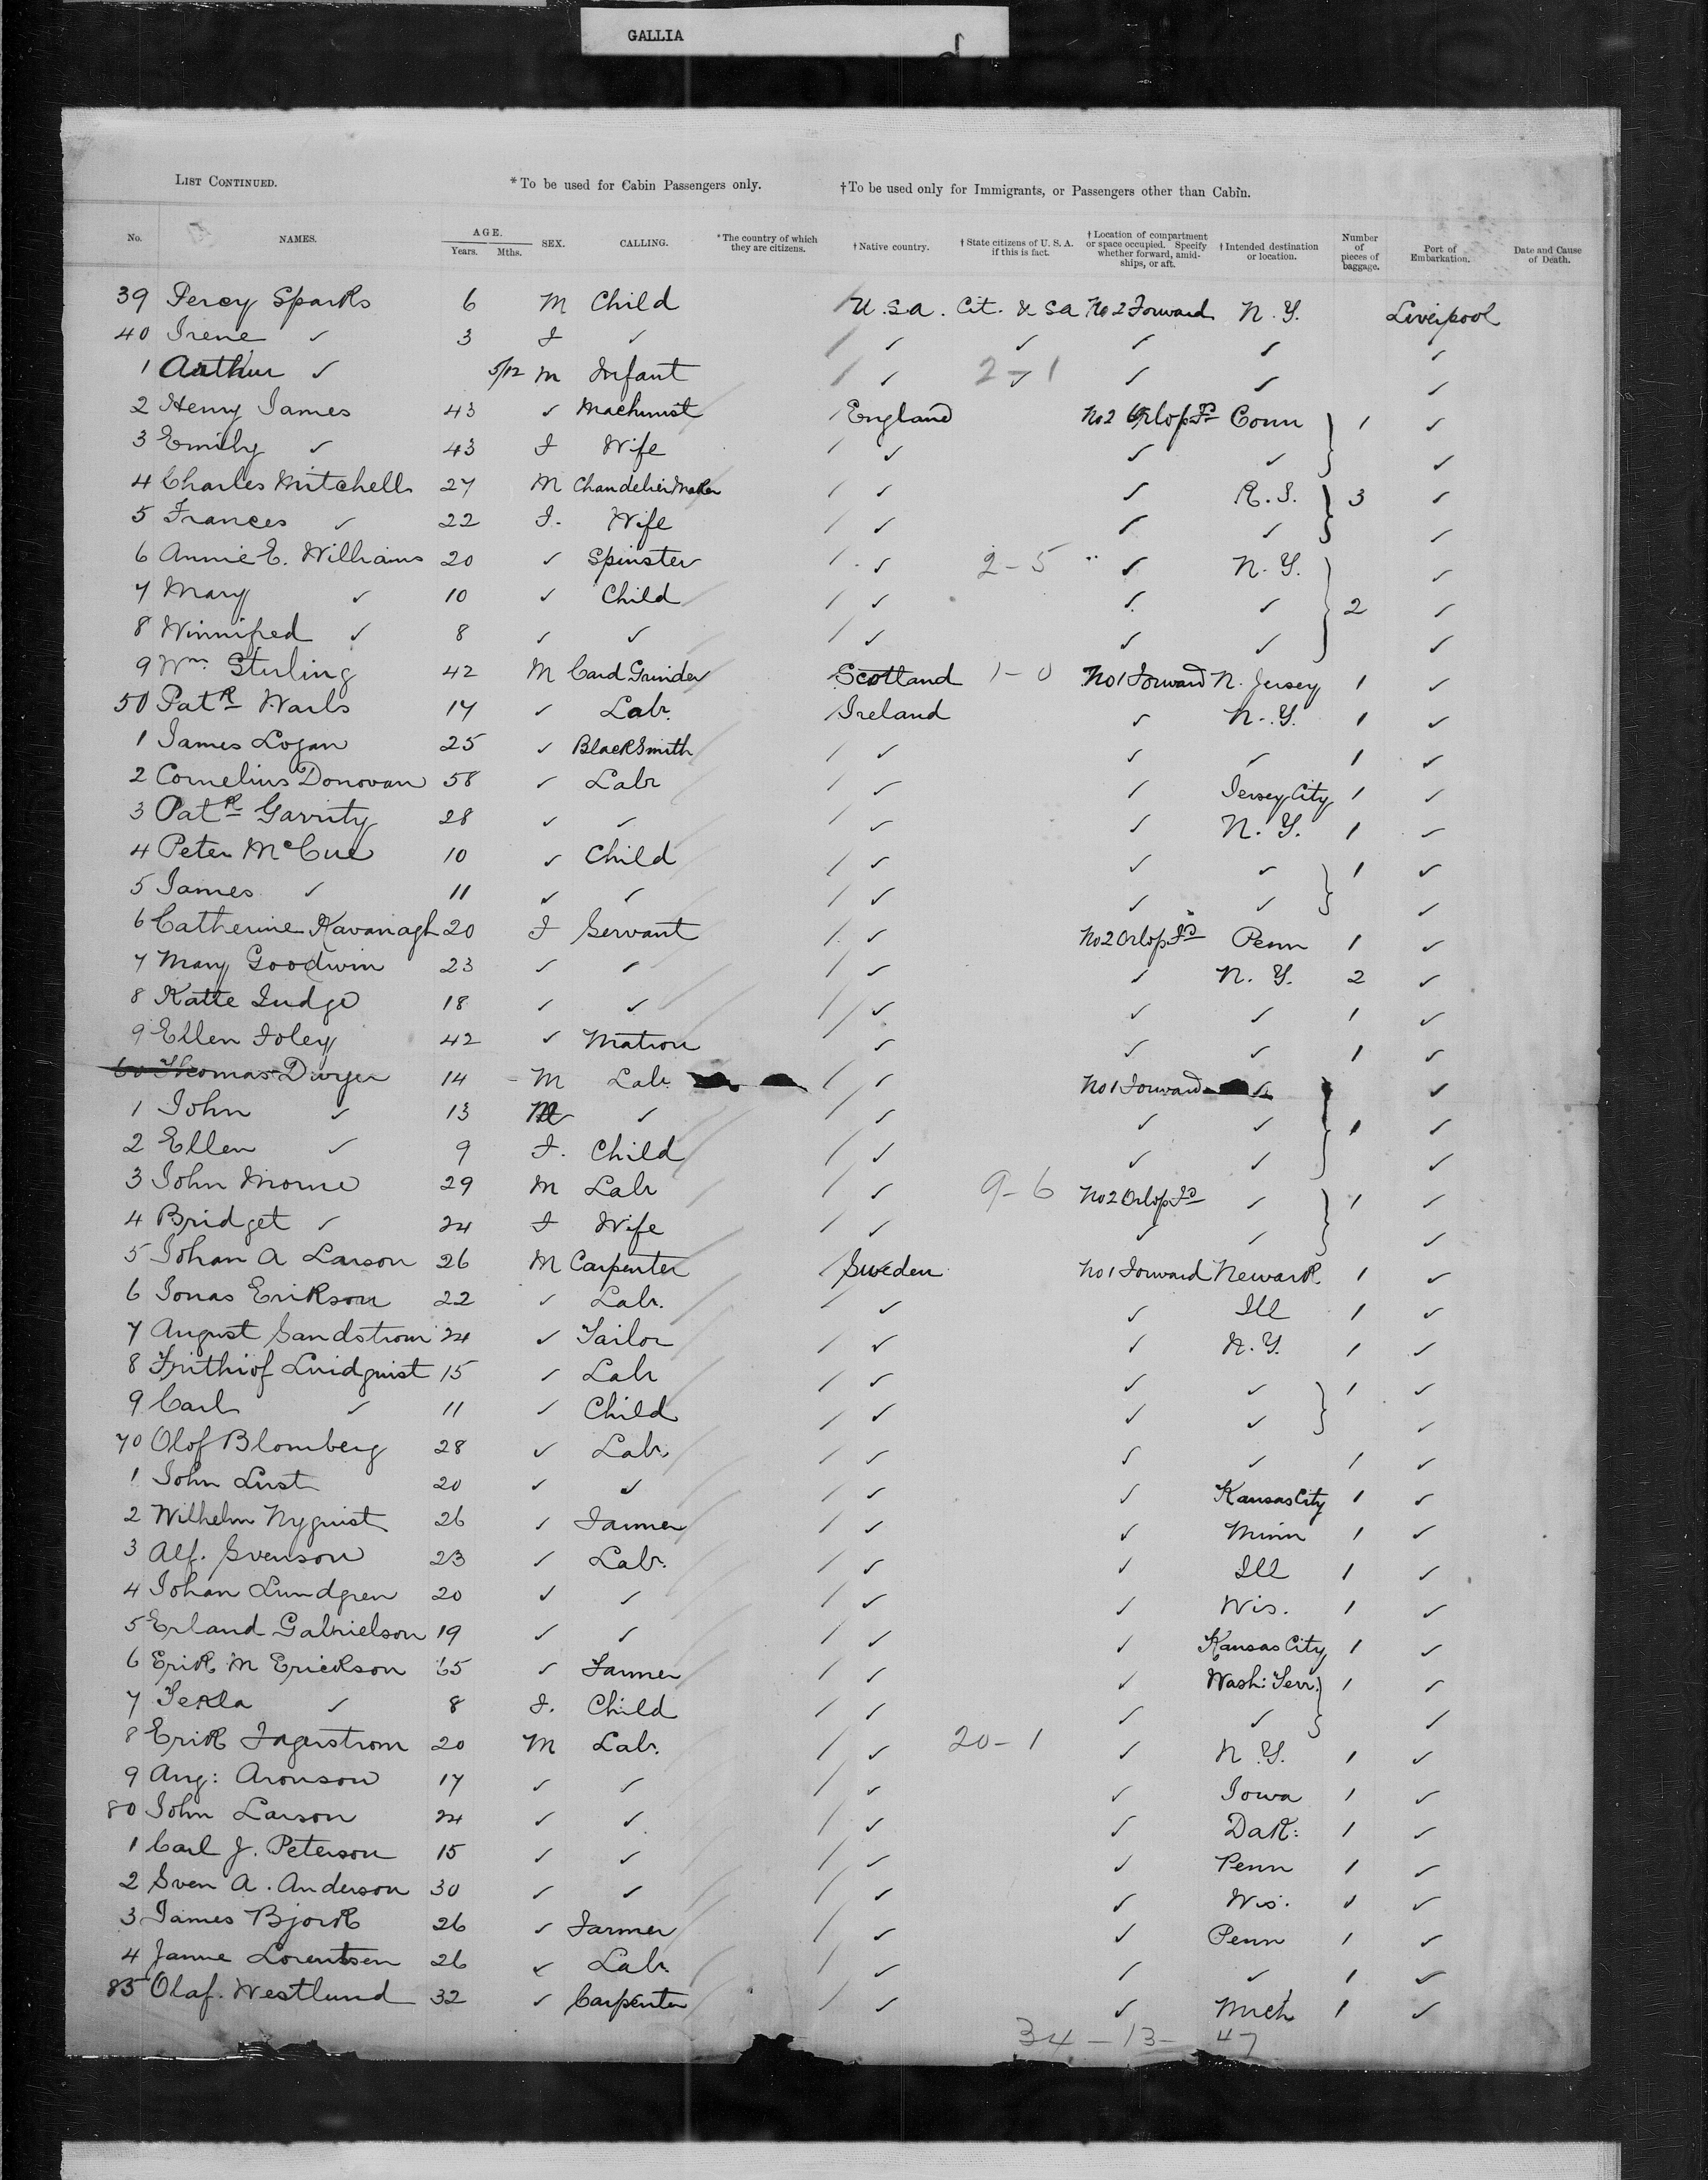 GALLIA
LIST CONTINUED. *To be used for Cabin Passengers only. †To be used only for Immigrants, or Passengers other than Cabin.
No. NAMES. AGE. Years. Mths. SEX. CALLING. *The country of which they are citizens. †Native country. †State citizens of U. S. A. if this is fact. †Location of compartment or space occupied. Specify whether forward, amidships, or aft. †Intended destination or location. Number of pieces of baggage. Port of Embarkation. Date and Cause of Death.
39 Percy Sparks 6 M Child U.S.A. Cit. U SA No 2 Forward N.Y. Liverpool
40 Irene ✓ 3 F ✓ ✓ ✓ ✓ ✓ ✓
1 Arthur ✓ 5/12 M Infant ✓ 2-1 ✓ ✓ ✓ ✓
2 Henry James 43 ✓ Machinist England No2 Orlop Fd Conn 1 ✓
3 Emily ✓ 43 F Wife ✓ ✓ ✓ ✓
4 Charles Mitchell 27 M Chandelier Maker ✓ ✓ R.I. 3 ✓
5 Frances ✓ 22 F. Wife ✓ ✓ ✓ ✓
6 Annie E. Williams 20 ✓ Spinster ✓ 2-5 ✓ N.Y. ✓
7 Mary ✓ 10 ✓ Child ✓ ✓ ✓ 2 ✓
8 Winnifred ✓ 8 ✓ ✓ ✓ ✓ ✓ ✓
9 Wm. Sterling 42 M Card Grinder Scotland 1-0 No1 Forward N. Jersey 1 ✓
50 Patk Warls 17 ✓ Labr. Ireland ✓ N.Y. 1 ✓
1 James Logan 25 ✓ BlackSmith ✓ ✓ ✓ 1 ✓
2 Cornelius Donovan 58 ✓ Labr ✓ ✓ Jersey City 1 ✓
3 Patk Garrity 28 ✓ ✓ ✓ ✓ N.Y. 1 ✓
4 Peter McCue 10 ✓ Child ✓ ✓ ✓ 1 ✓
5 James ✓ 11 ✓ ✓ ✓ ✓ ✓ ✓
6 Catherine Kavanagh 20 F Servant ✓ No2 Orlop Fd Penn 1 ✓
7 Mary Goodwin 23 ✓ ✓ ✓ ✓ N.Y. 2 ✓
8 Katie Judge 18 ✓ ✓ ✓ ✓ ✓ 1 ✓
9 Ellen Foley 42 ✓ Matron ✓ ✓ ✓ 1 ✓
60 Thomas Dwyer 14 M Labr ✓ No1 Forward ✓ ✓
1 John ✓ 13 M ✓ ✓ ✓ ✓ 1 ✓
2 Ellen ✓ 9 F. Child ✓ ✓ ✓ ✓
3 John Morne 29 M Labr ✓ 9-6 No2 Orlop Fd ✓ 1 ✓
4 Bridget ✓ 24 F Wife ✓ ✓ ✓ ✓
5 Johan A Larson 26 M Carpenter Sweden No1 Forward Newark 1 ✓
6 Jonas Erikson 22 ✓ Labr. ✓ ✓ Ill 1 ✓
7 August Sandstrom 24 ✓ Tailor ✓ ✓ N.Y. 1 ✓
8 Frithiof Lindquist 15 ✓ Labr ✓ ✓ ✓ 1 ✓
9 Carl ✓ 11 ✓ Child ✓ ✓ ✓ ✓
70 Olof Blomberg 28 ✓ Labr. ✓ ✓ ✓ 1 ✓
1 John Lust 20 ✓ ✓ ✓ ✓ Kansas City 1 ✓
2 Wilhelm Nyquist 26 ✓ Farmer ✓ ✓ Minn 1 ✓
3 Alf. Svenson 23 ✓ Labr. ✓ ✓ Ill 1 ✓
4 Johan Lundgren 20 ✓ ✓ ✓ ✓ Wis. 1 ✓
5 Erland Gabrielson 19 ✓ ✓ ✓ ✓ Kansas City 1 ✓
6 Erik M Erickson 65 ✓ Farmer ✓ ✓ Wash: Terr. 1 ✓
7 Tekla ✓ 8 F. Child ✓ ✓ ✓ ✓
8 Erik Fagerstrom 20 M Labr. ✓ 20-1 ✓ N.Y. 1 ✓
9 Aug: Aronson 17 ✓ ✓ ✓ ✓ Iowa 1 ✓
80 John Larson 24 ✓ ✓ ✓ ✓ Dak: 1 ✓
1 Carl J. Peterson 15 ✓ ✓ ✓ ✓ Penn 1 ✓
2 Sven A. Anderson 30 ✓ ✓ ✓ ✓ Wis. 1 ✓
3 James Bjork 26 ✓ Farmer ✓ ✓ Penn 1 ✓
4 Janne Lorentsen 26 ✓ Labr. ✓ ✓ ✓ 1 ✓
85 Olaf. Westlund 32 ✓ Carpenter ✓ ✓ Mich 1 ✓
34-13-47